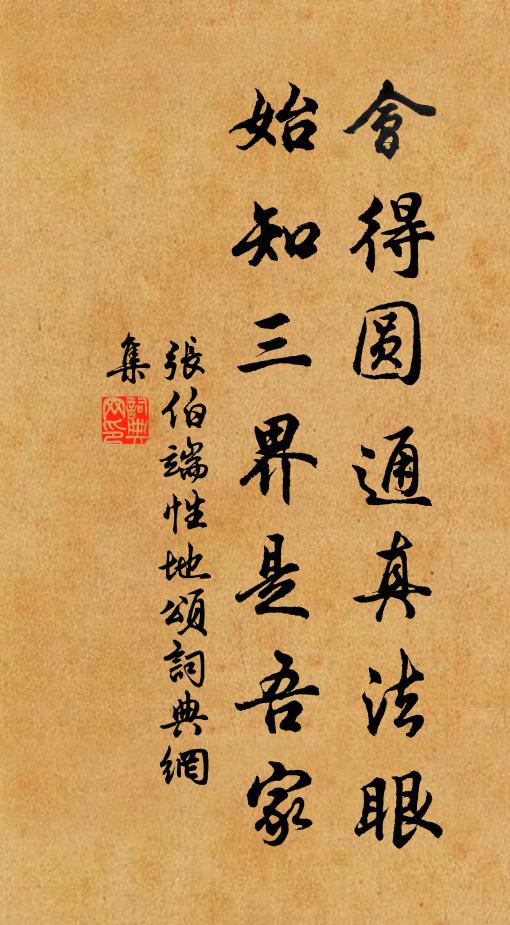 會得圓通真法眼
始知三界是吾家
張伯端性地頌詞典網
集
詞典網印